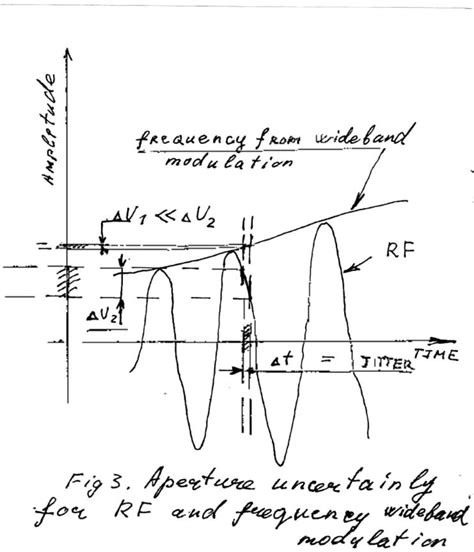 Amplitude
frequency from wideband
modulation
ΔU₁ << ΔU₂
RF
ΔU₂
TIME
Δt = JITTER
Fig 3. Aperture uncertainly
for RF and frequency wideband
modulation